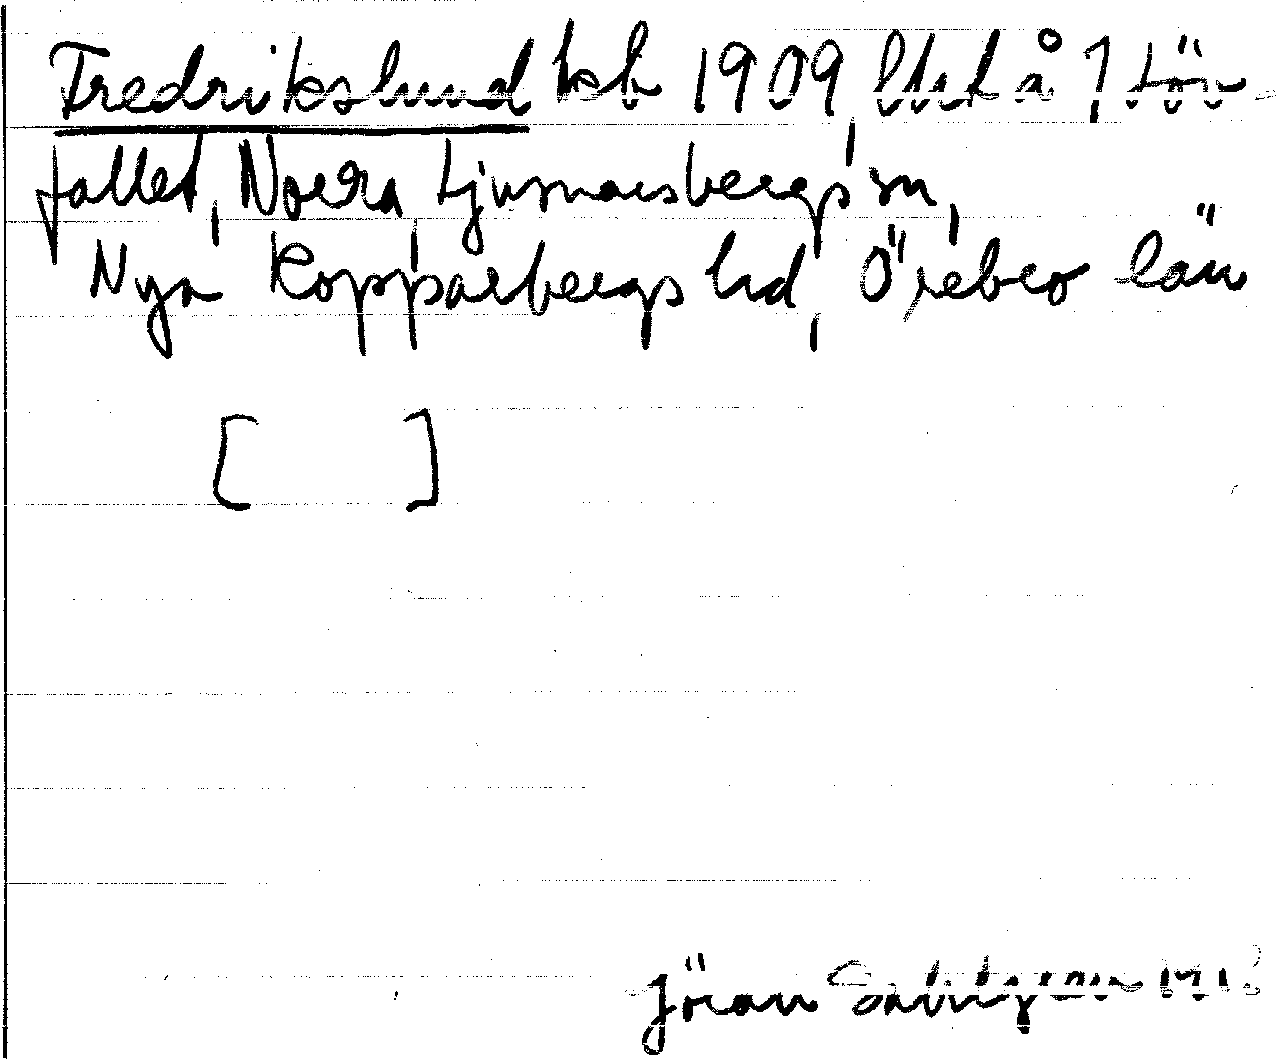 Fredrikslund kb 1909, lht å 1 Lön-
fallet, Norra Ljusnarsbergs sn,
Nya Kopparbergs hd, Örebro län
[ ]
Jöran Sahlgren